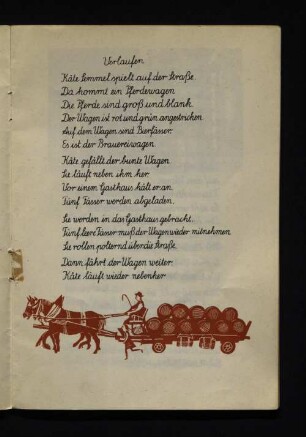 Verlaufen
Käte Semmel spielt auf der Straße.
Da kommt ein Pferdewagen
Die Pferde sind groß und blank.
Der Wagen ist rot und grün angestrichen
Auf dem Wagen sind Bierfässer.
Es ist der Brauereiwagen.
Käte gefällt der bunte Wagen.
Sie läuft neben ihm her.
Vor einem Gasthaus hält er an.
Fünf Fässer werden abgeladen.
Sie werden in das Gasthaus gebracht.
Fünf leere Fässer muß der Wagen wieder mitnehmen.
Sie rollen polternd über die Straße.
Dann fährt der Wagen weiter.
Käte läuft wieder nebenher.